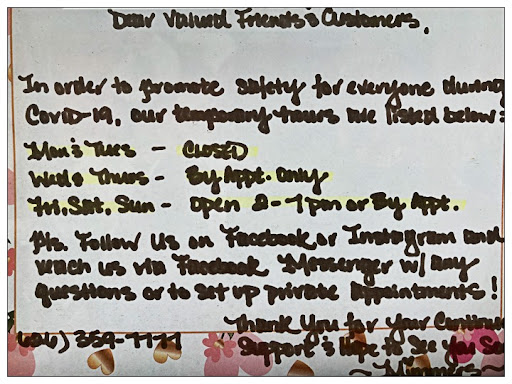 Dear Valued Friends & Customers,
In order to promote safety for everyone during
Covid-19, our temporary hours are listed below:
Mon & Tues - CLOSED
Wed & Thurs - By Appt. Only
Fri, Sat, Sun - Open 2-7pm or By Appt.
Pls. Follow Us on Facebook or Instagram and
reach us via Facebook Messenger w/ any
questions or to set up private appointments!
Thank You for Your Continue
626) 359-7177 Support & Hope to See You So
~ Mimmers ~